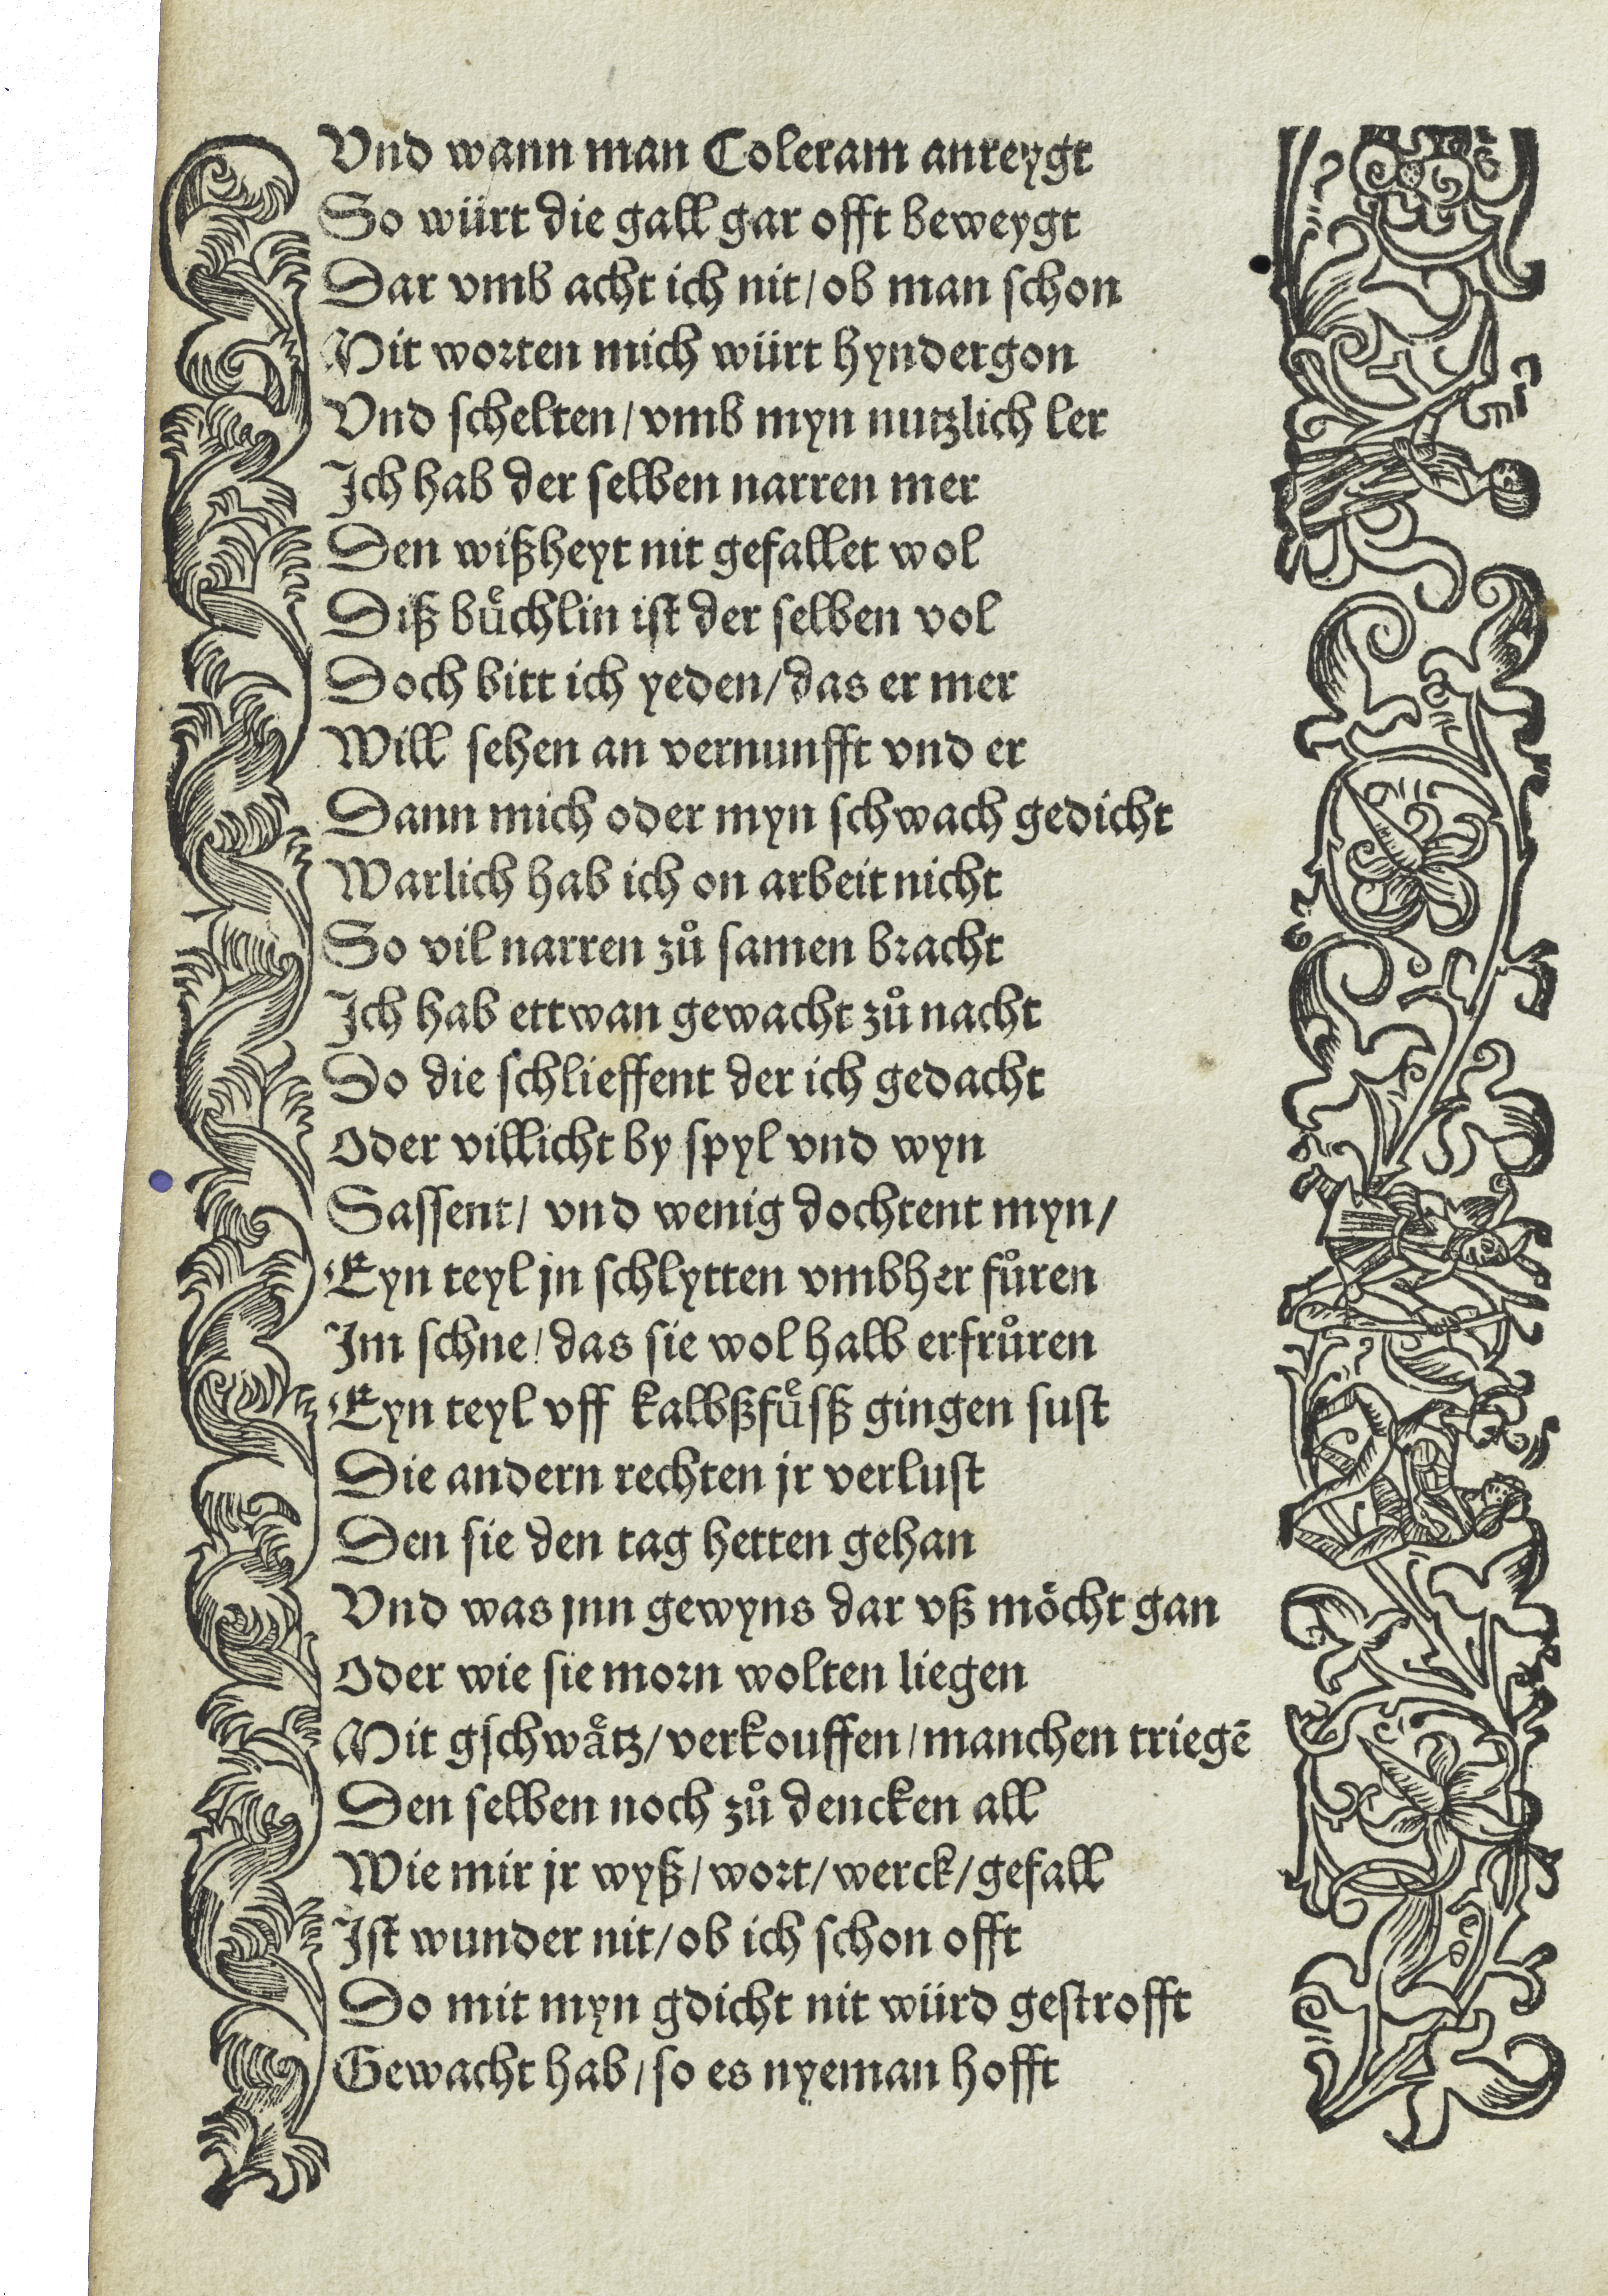 Vnd wann man Coleram anreygt
So würt die gall gar offt beweygt
Dar vmb acht ich nit/ob man schon
Mit worten mich würt hyndergon
Vnd schelten/vmb myn nutzlich ler
Ich hab der selben narren mer
Den wißheyt nit gefallet wol
Diß buͤchlin ist der selben vol
Doch bitt ich yeden/das er mer
Will sehen an vernunfft vnd er
Dann mich oder myn schwach gedicht
Warlich hab ich on arbeit nicht
So vil narren zů samen bracht
Ich hab ettwan gewacht zů nacht
Do die schlieffent der ich gedacht
Oder villicht by spyl vnd wyn
Sassent/ vnd wenig dochtent myn/
Eyn teyl jn schlytten vmbher fůren
Im schne/das sie wol halb erfrůren
Eyn teyl vff kalbßfuͤsß gingen sust
Die andern rechten jr verlust
Den sie den tag hetten gehan
Vnd was jnn gewyns dar vß moͤcht gan
Oder wie sie morn wolten liegen
Mit gschwaͤtz/verkouffen/manchen triegē
Den selben noch zů dencken all
Wie mir jr wyß/wort/werck/gefall
Ist wunder nit/ob ich schon offt
Do mit myn gdicht nit würd gestrofft
Gewacht hab/so es nyeman hofft